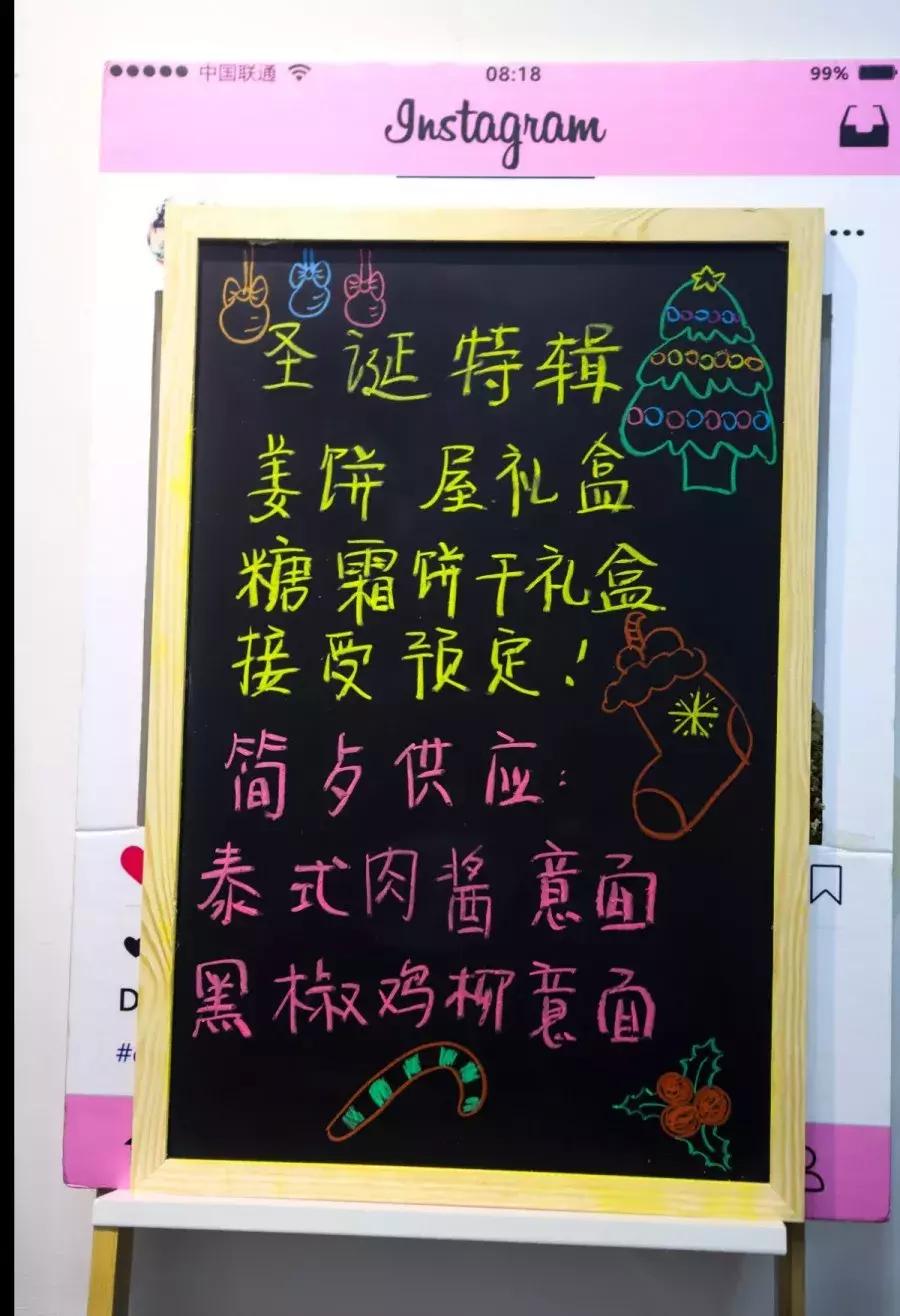 中国联通 08:18 99%
Instagram
圣诞特辑
姜饼屋礼盒
糖霜饼干礼盒
接受预定!
简歺供应:
泰式肉酱意面
黑椒鸡柳意面
D
#